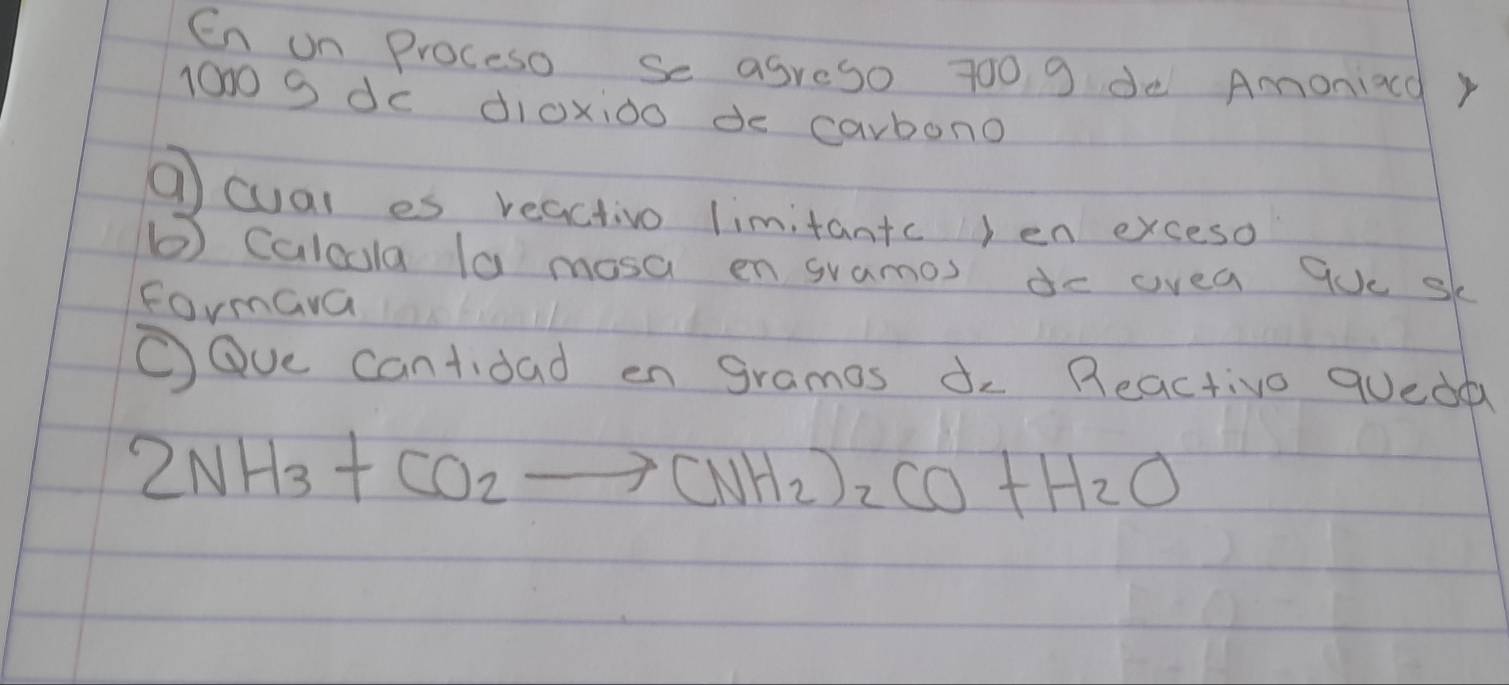 En un Proceso se agrego 700 g de Amoniaco y
1000 g de dioxido de carbono
a) cual es reactivo limitante y en exceso
b) Calcula la masa en gramos de urea que se
formara
c) Que cantidad en gramos de Reactivo queda
2NH₃ + CO₂ → (NH₂)₂CO + H₂O